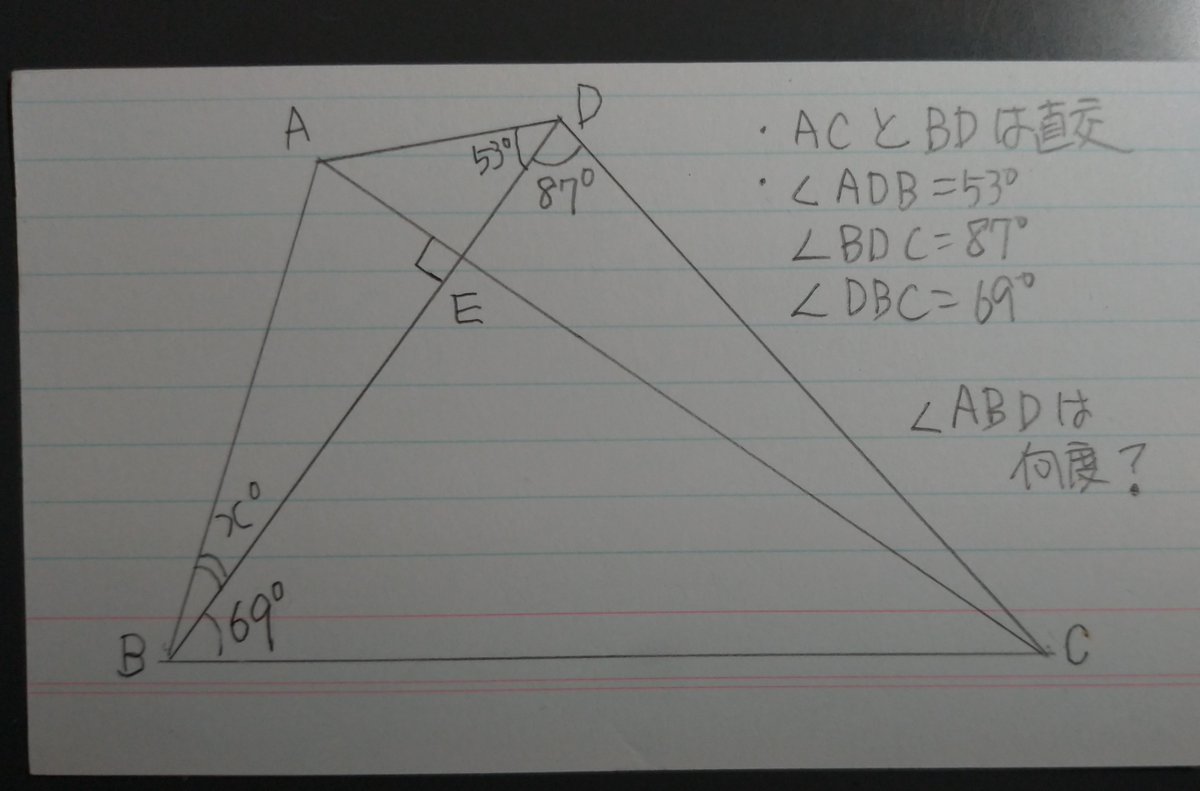 A
D
53°
87°
E
x°
69°
B
C
・ACとBDは直交
・∠ADB=53°
∠BDC=87°
∠DBC=69°
∠ABDは
何度?